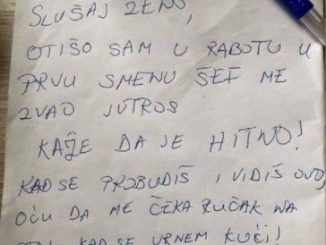 SLUŠAJ ŽENO,
OTIŠO SAM U RABOTU U
PRVU SMENU ŠEF ME
ZVAO JUTROS
KAŽE DA JE HITNO!
KAD SE PROBUDIŠ I VIDIŠ OVO,
OĆU DA ME ČEKA RUČAK NA
KAD SE VRNEM KUĆI!